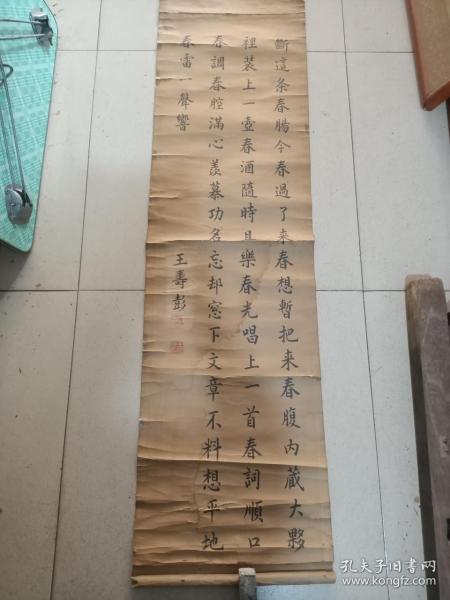 斷這条春腸今春過了来春想暫把来春腹内藏大夥
裡装上一壺春酒隨時且樂春光唱上一首春詞順口
春調春腔滿心羨慕功名忘却窓下文章不料想平地
春雷一聲響
王壽彭
孔夫子旧书网
www.kongfz.com